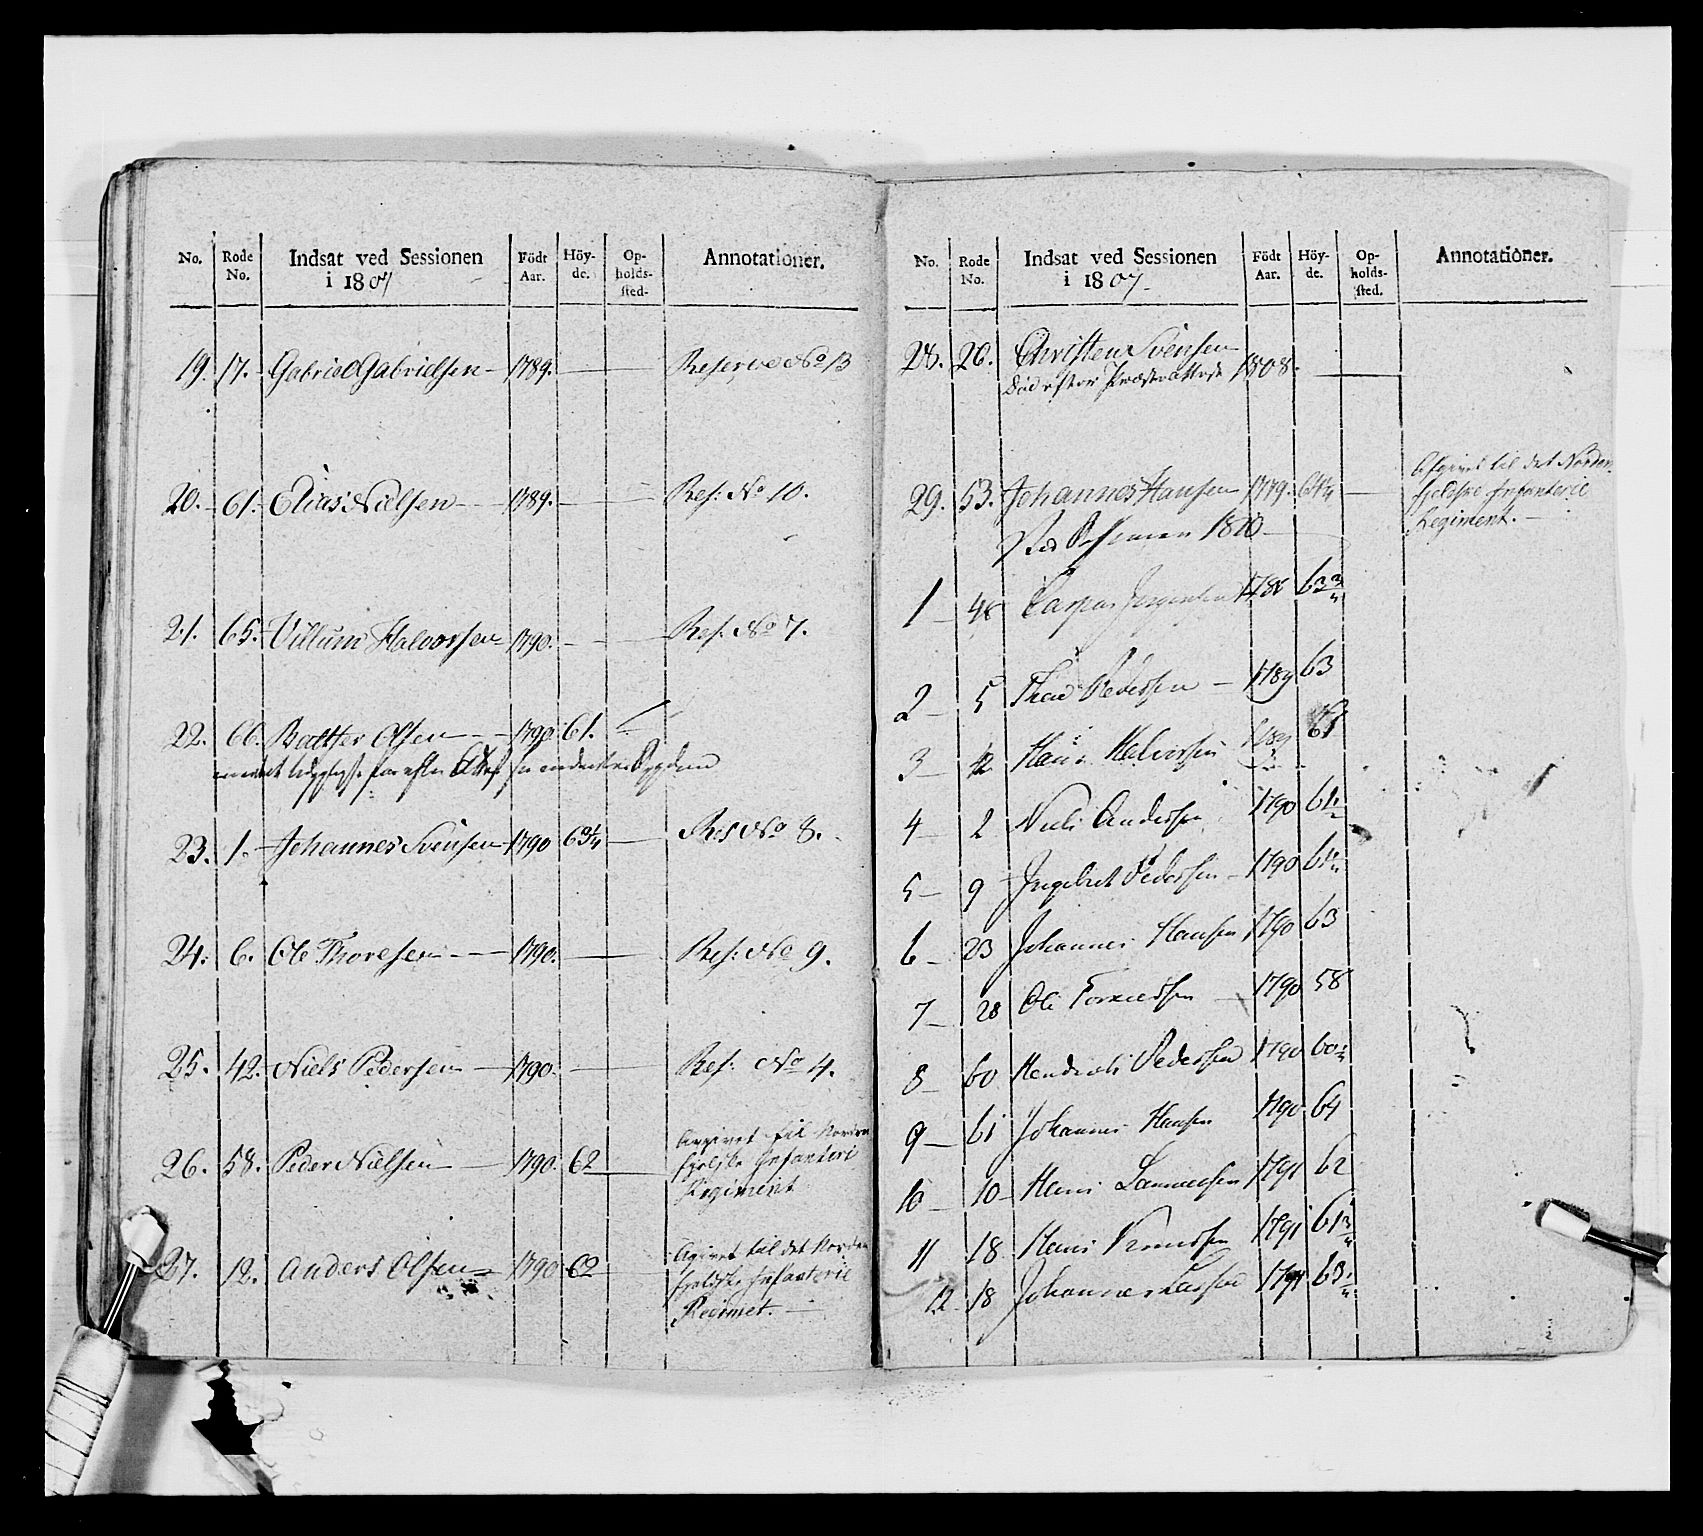 No. Rode No. Indsat ved Sessionen i 1807 Födt Aar. Höy-de. Op-holds-sted- Annotationer.
19. 17. Gabriel Gabrielsen 1789. Reserve No 13
20. 61. Elias Nielsen 1789. Res: No 10.
21. 65. Villum Halvorsen 1790. Res: No 7.
22. 66. Baltser Olsen 1790 61.
23. 1. Johannes Svensen 1790 63¼ Res No 8.
24. 6. Ole Thoresen 1790. Res: No 9.
25. 42. Niels Pedersen 1790. Res: No 4.
26. 58. Peder Nielsen 1790. 62 Avgivet til Norden
fieldske Infanteri
Regiment
27. 12. Anders Olsen 1790 62 Agivet til det Norden
fieldske Infanterie
Regimet.
No. Rode No. Indsat ved Sessionen i 1807 Födt Aar. Höy-de. Op-holds-sted. Annotationer.
28. 26. Christen Svensen
Död efter Præste Attest 1808.
29. 53. Johannes Hansen 1779. Afgivet til det Norden
fieldske Infanterie
Regiment.
Ved Sessionen 1810
1 46 Caspar Jörgensen 63¾
2 5 Pedersen 1789 63
3 Hans Halvorsen 1789
4 2 Niels Andersen 1790
5 9 Ingebret Pedersen 1790
6 23 Johannes Hansen 1790 63
7 28 Ole 1790 58
8 60 Pedersen 1790
9 61 Johannes Hansen 1790 64
10 10 Hans 1791 62
11 18 Hans 1791 61¾
12 18 Johannes Larsen 1791